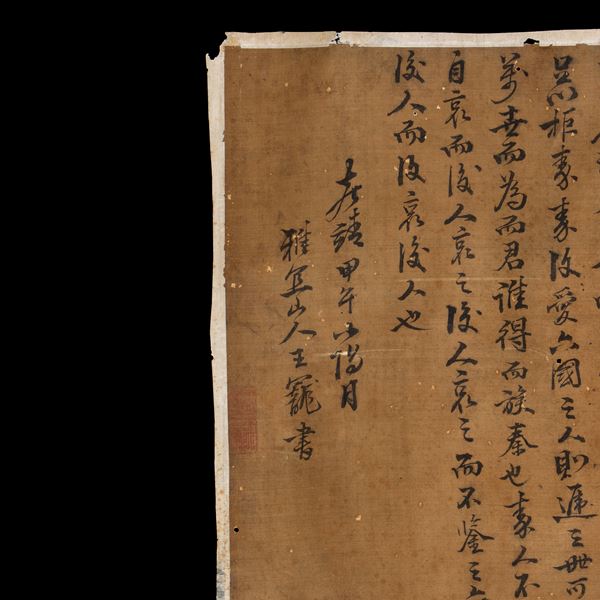 足以拒秦秦復愛六國之人則遞三世可
萬世而為而君誰得而族秦也秦人不
自哀而後人哀之後人哀之而不鑒之
後人而復哀後人也
嘉靖甲午小陽月
雅宜山人王寵書